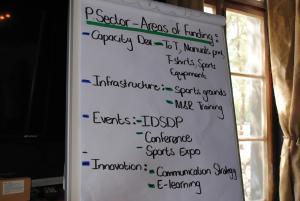 P Sector - Areas of Funding:
- Capacity Dev - ToT, Manuals prod,
T-shirts, Sports
Equipment
- Infrastructure: - Sports grounds
- M&R Training
- Events: - IDSDP
- Conference
- - Sports Expo
- Innovation: - Communication Strategy
- E-learning